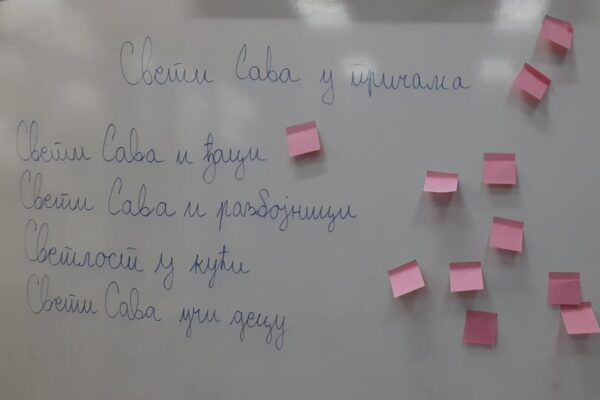 Свети Сава у причама
Свети Сава и ђаци
Свети Сава и разбојници
Светлост у кући
Свети Сава учи децу